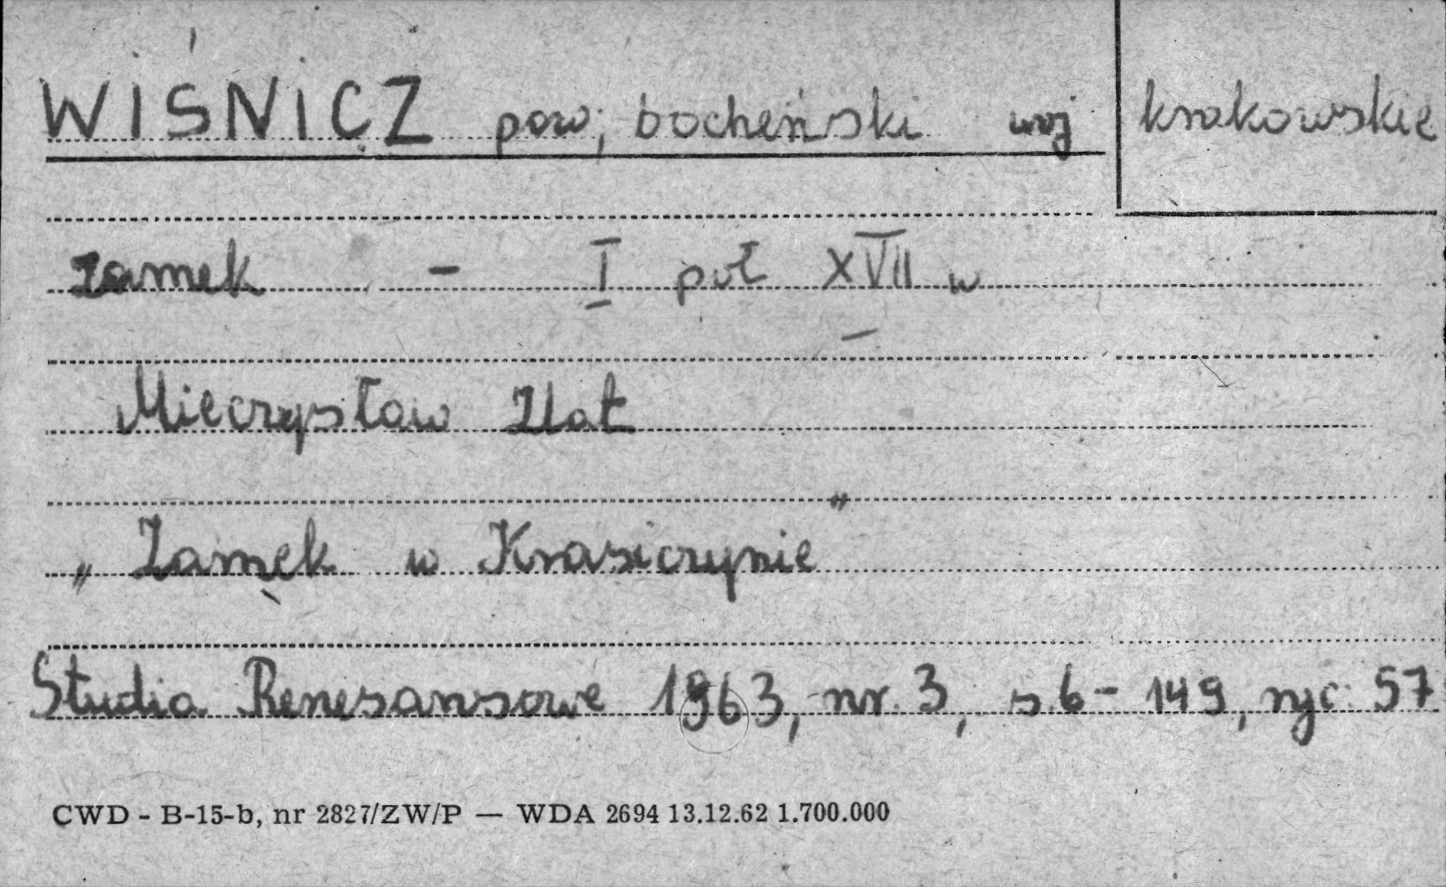 WIŚNICZ pow; bocheński woj krakowskie
zamek - I poł XVII w
Mieczysław Zlat
„Zamek w Krasiczynie"
Studia Renesansowe 1963, nr. 3, s 6 - 149, ryc 57
CWD - B-15-b, nr 2827/ZW/P — WDA 2694 13.12.62 1.700.000